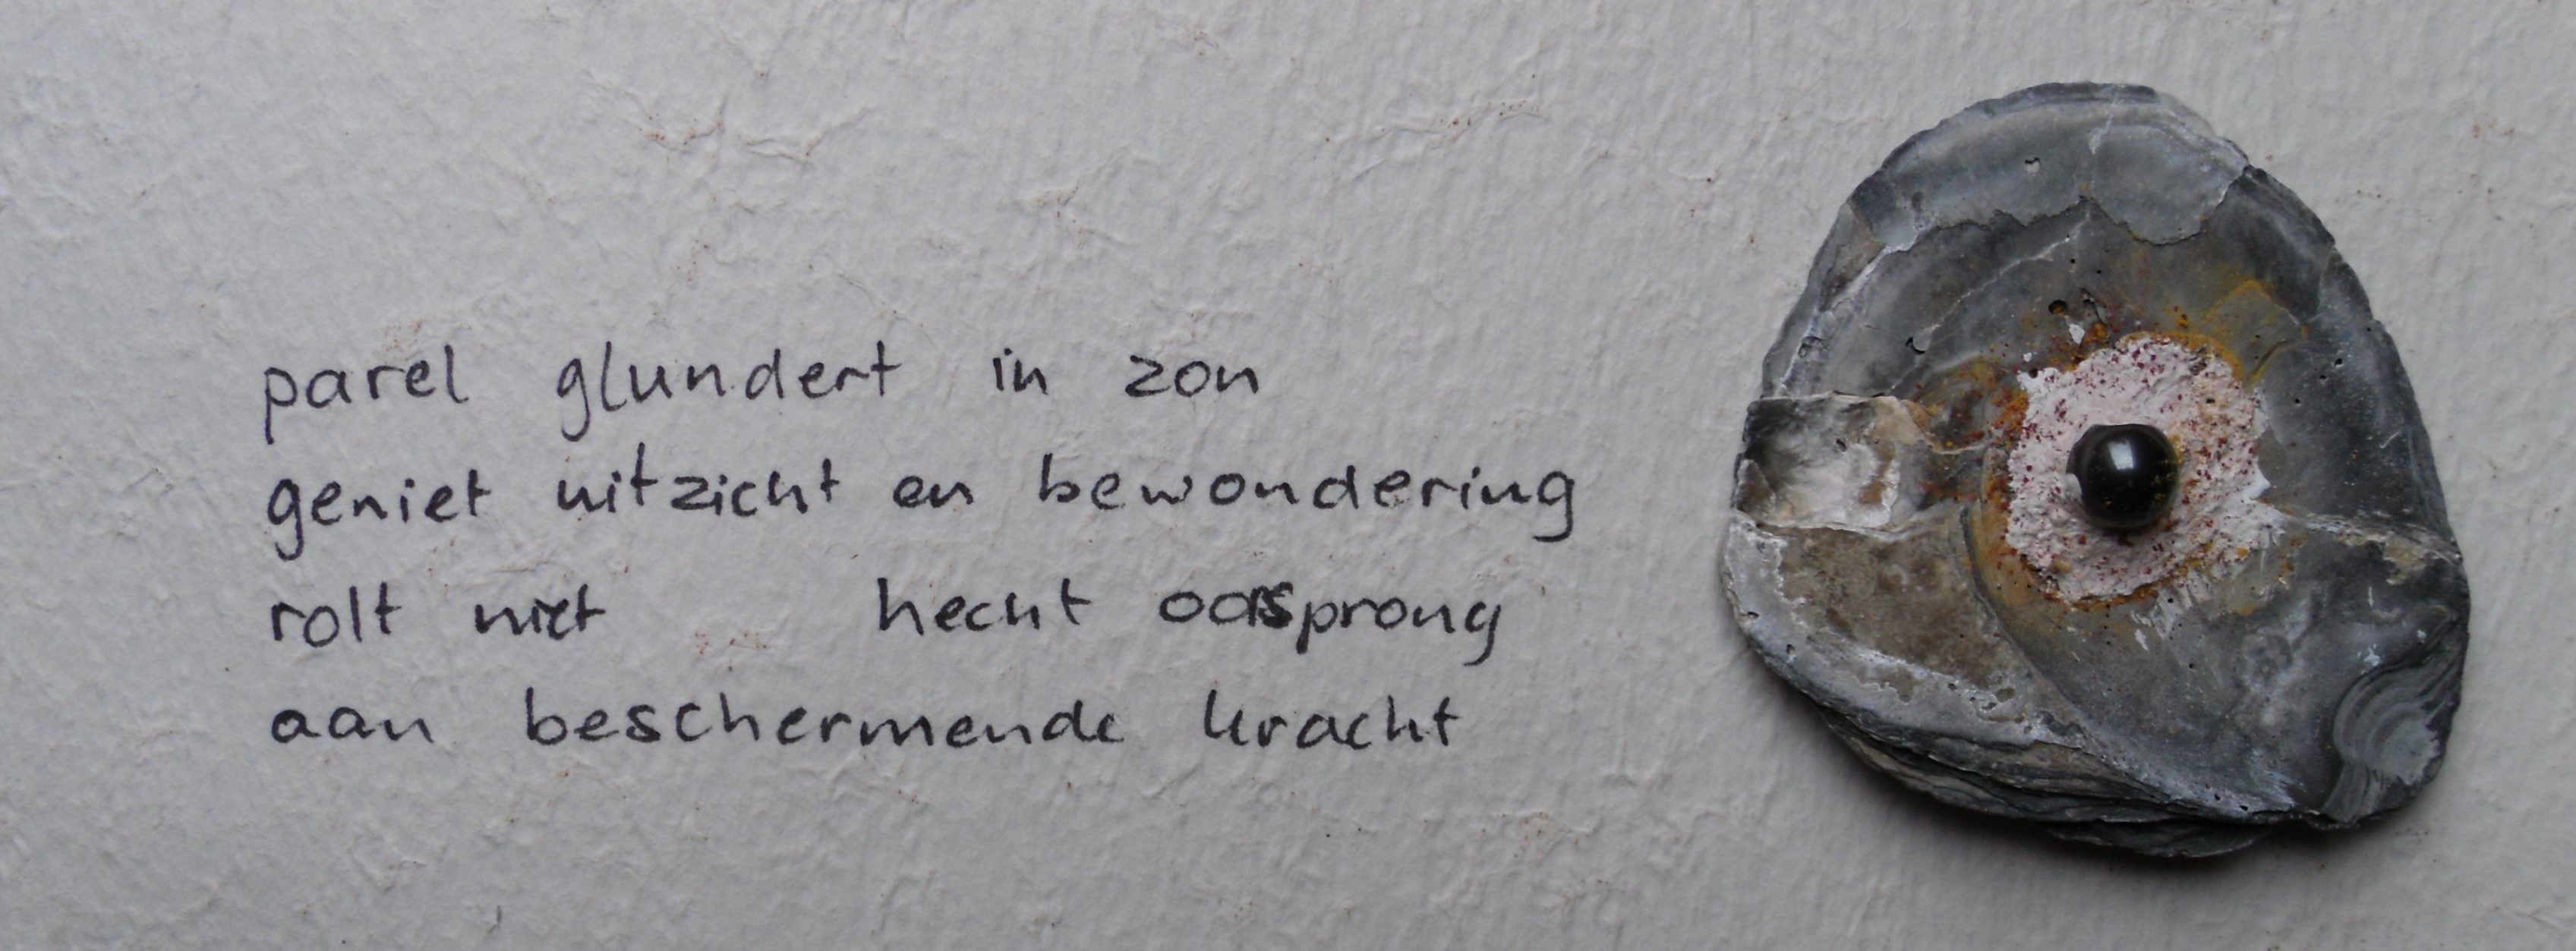 parel glundert in zon
geniet uitzicht en bewondering
rolt niet hecht oorsprong
aan beschermende kracht